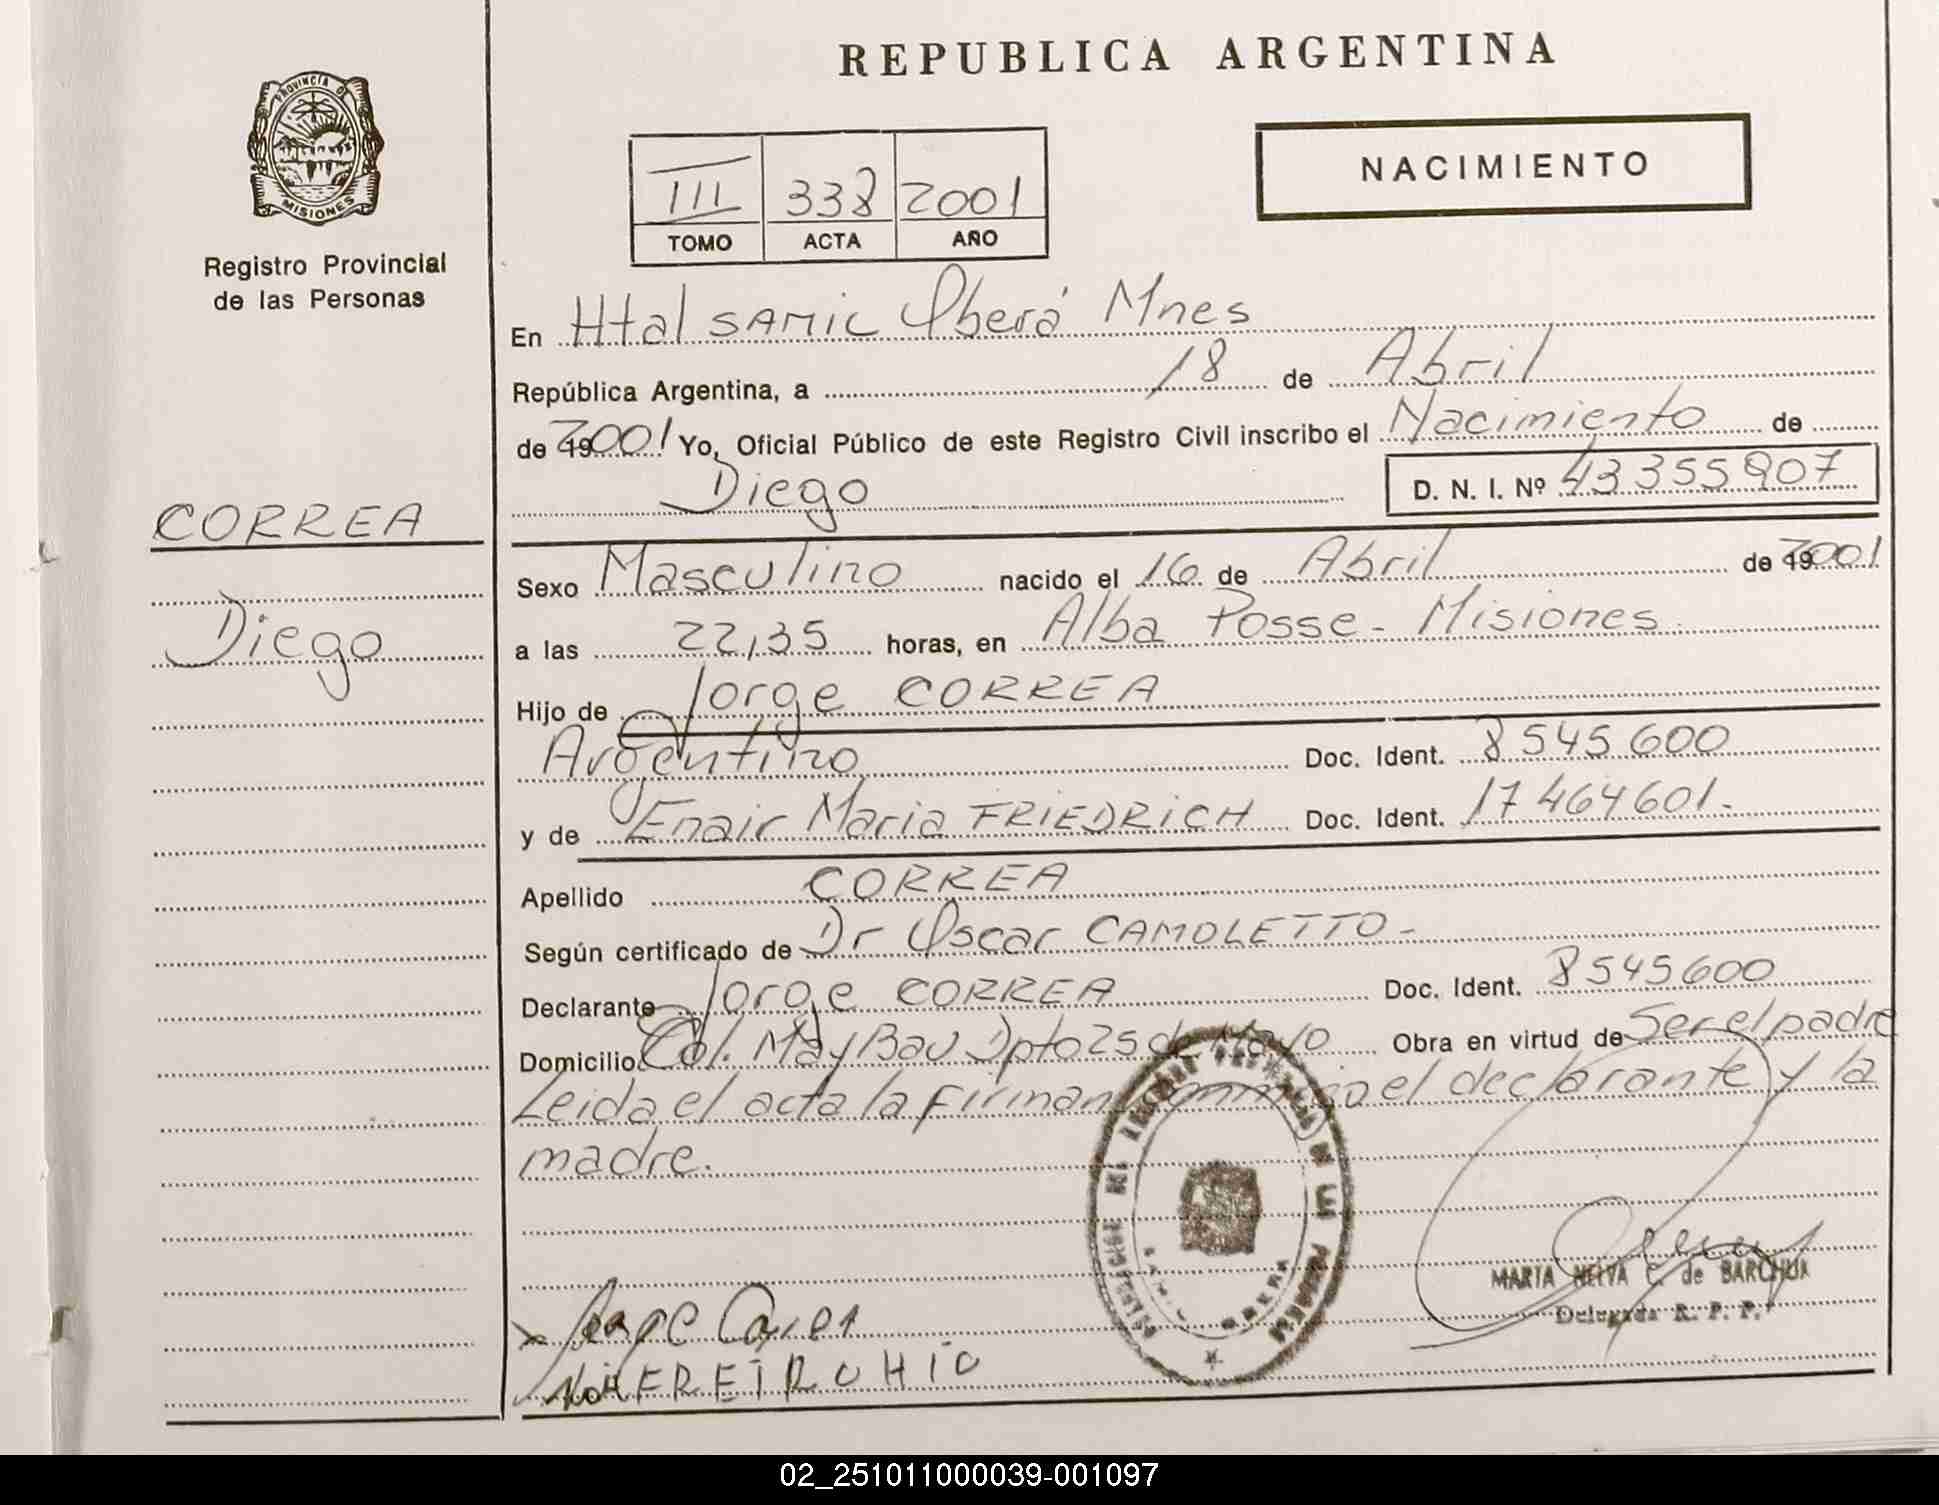 REPUBLICA ARGENTINA
PROVINCIA DE
MISIONES
Registro Provincial
de las Personas
III 338 2001
TOMO ACTA AÑO
NACIMIENTO
En Htal SAMIC Oberá Mnes
República Argentina, a 18 de Abril
de 2001 Yo, Oficial Público de este Registro Civil inscribo el Nacimiento de
Diego D. N. I. Nº 43355907
CORREA
Diego
Sexo Masculino nacido el 16 de Abril de 2001
a las 22,35 horas, en Alba Posse - Misiones
Hijo de Jorge CORREA
Argentino Doc. Ident. 8545600
y de Enair Maria FRIEDRICH Doc. Ident. 17464601.-
Apellido CORREA
Según certificado de Dr Oscar CAMOLETTO-
Declarante Jorge CORREA Doc. Ident. 8545600
Domicilio Col. MayBau Dpto 25 de Mayo Obra en virtud de Ser el padre
Leida el acta la firman conmigo el declarante y la
madre.
MARTA NELVA C. de BARCHUK
Delegada R. P. P.
Jorge
02_251011000039-001097